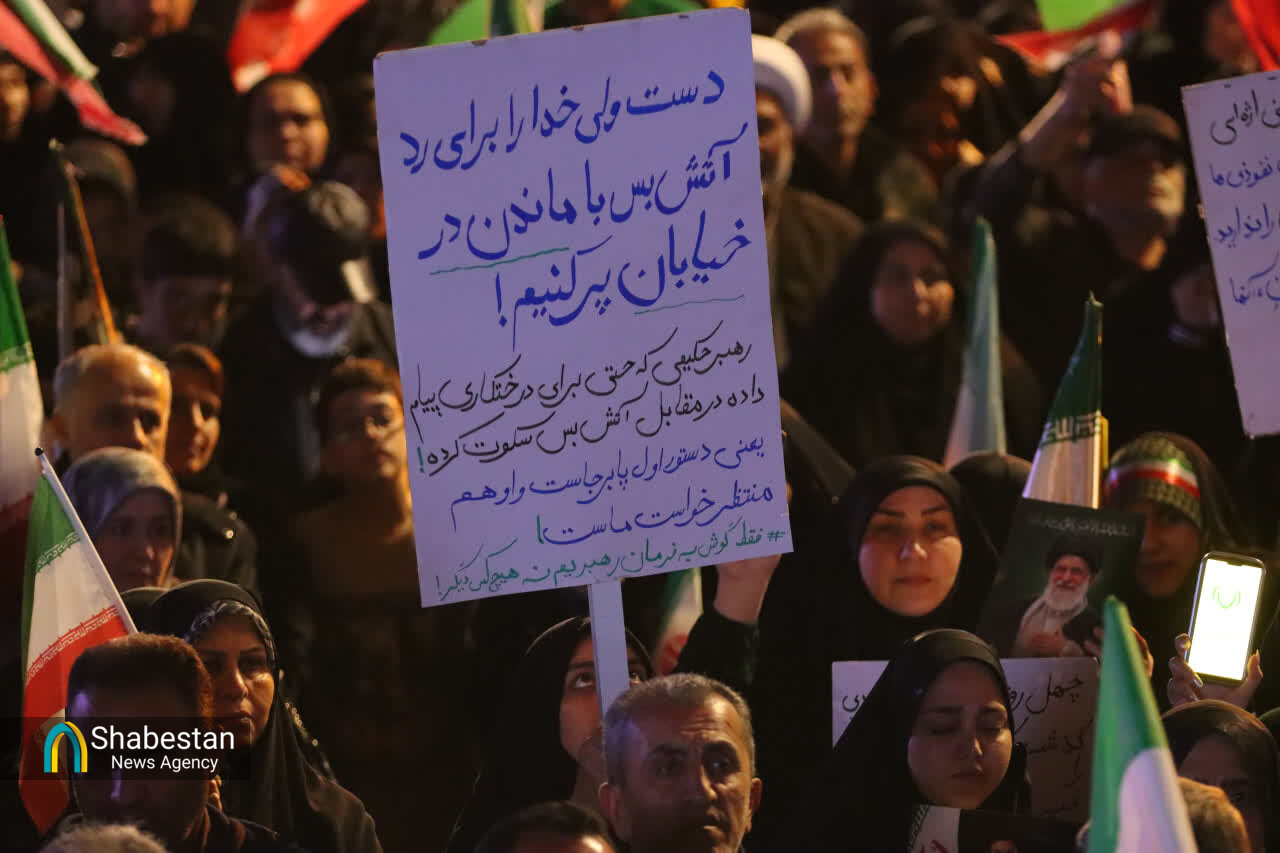 دست ولی خدا را برای رد
آتش بس با ماندن در
خیابان پر کنیم!
رهبر حکیمی که حتی برای درختکاری پیام
داده در مقابل آتش بس سکوت کرده!
یعنی دستور اول پابرجاست و او هم
منتظر خواست ماست!
# فقط گوش به فرمان رهبریم نه هیچ کس دیگر!
نفوذی ما
را ندارید
چهل
Shabestan
News Agency